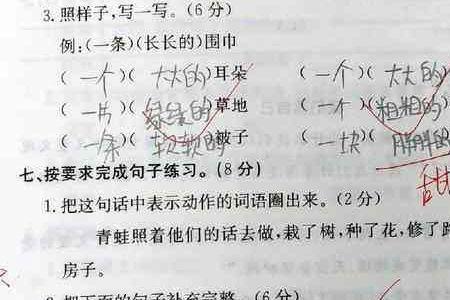 3.照样子,写一写。(6分)
例:(一条)(长长的)围巾
(一个)(大大的)耳朵 (一个)(大大的)
(一片)(绿绿的)草地 (一个)(粗粗的)
(一条)(软软的)被子 (一块)(胖胖的)
甜
七、按要求完成句子练习。(8分)
1.把这句话中表示动作的词语圈出来。(2分)
青蛙照着他们的话去做,栽了树,种了花,修了
房子。
(6分)